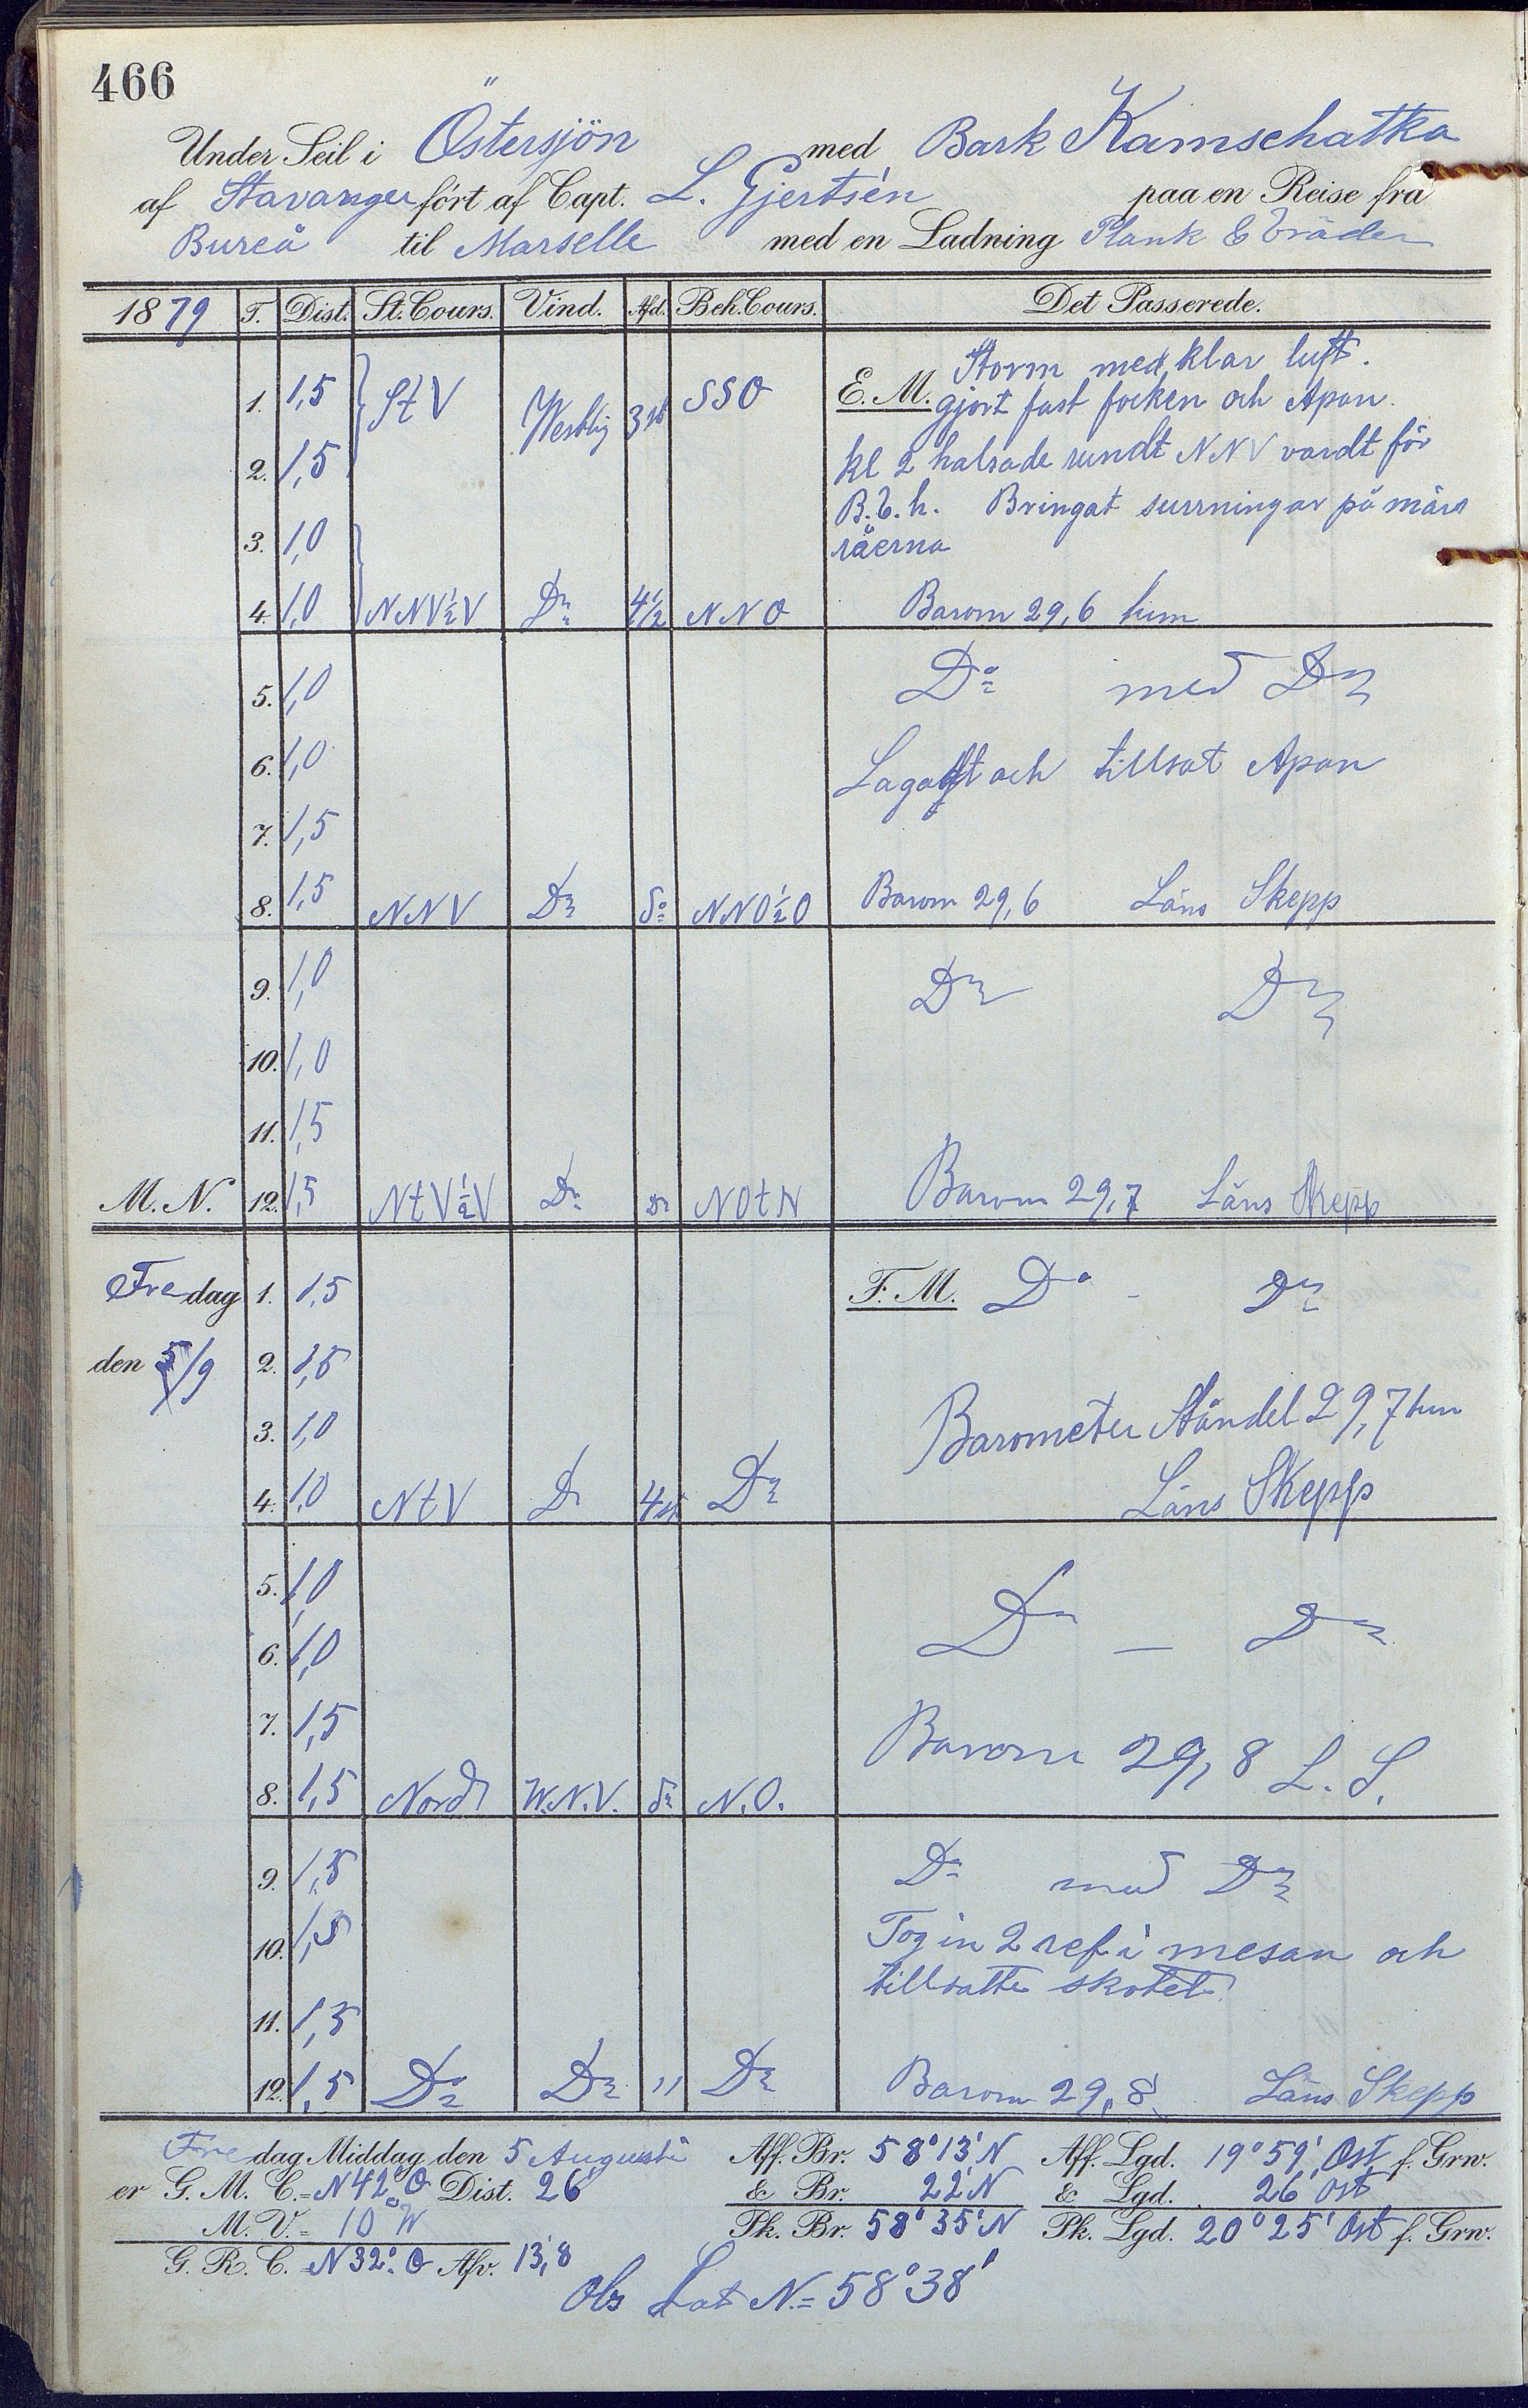 466
Under Seil i Östersjön med Bark Kamschatka
af Stavanger fört af Capt. L. Gjertsén paa en Reise fra
Bureå til Marselle med en Ladning Plank & Bräder
1879 T. Dist. St. Cours. Vind. Afd. Beh. Cours. Det Passerede.
E. M. Storm med klar luft.
1. 1,5 StV Westlig 3 st SSO gjort fast focken och Apan.
2. 1,5 kl 2 halsade rundt NNV vardt för
B.b.h. Bringat surrningar på märs
3. 1,0 råerna
4. 1,0 NNV½V Do 4½ NNO Barom 29,6 tum
5. 1,0 Do med Do
6. 1,0 och tillsat Apan
7. 1,5
8. 1,5 NNV Do do NNO½O Barom 29,6 Läns Skepp
9. 1,0 Do Do
10. 1,0
11. 1,5
M. N. 12. 1,5 NtV½V Do Do NOtN Barom 29,7 Läns Skepp
Fredag 1. 1,5 F. M. Do - Do
den 5/9 2. 1,5
3. 1,0 Barometer Ståndet 29,7 tum
4. 1,0 NtV Do 4 st Do Läns Skepp
5. 1,0 Do — Do
6. 1,0
7. 1,5 Barom 29,8 L. S.
8. 1,5 Nord W.N.V. do N.O.
9. 1,5 Do med Do
10. 1,5 Tog in 2 ref i mesan och
tillsatte skotet
11. 1,5
12. 1,5 Do Do " Do Barom 29,8 Läns Skepp
Fredag Middag den 5 Augusti Aff. Br. 58°13' N Aff. Lgd. 19°59' Ost f. Grw.
er G. M. C. = N 42° O Dist. 26' & Br. 22' N & Lgd. 26' Ost
M. V. = 10° W Pk. Br. 58°35' N Pk. Lgd. 20°25' Ost f. Grw.
G. R. C. N 32° O Afv. 13,8
Obs Lat N = 58°38'